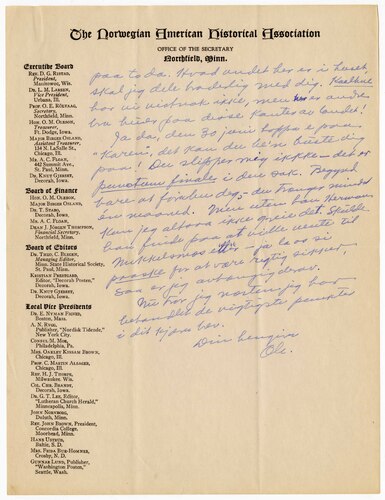 The Norwegian American Historical Association
OFFICE OF THE SECRETARY
Northfield, Minn.
Executive Board
REV. D. G. RISTAD,
President,
Manitowoc, Wis.
DR. L. M. LARSON,
Vice President,
Urbana, Ill.
PROF. O. E. RÖLVAAG,
Secretary,
Northfield, Minn.
HON. O. M. OLESON,
Treasurer,
Ft. Dodge, Iowa.
MAJOR BIRGER OSLAND,
Assistant Treasurer,
134 N. LaSalle St.,
Chicago, Ill.
MR. A. C. FLOAN,
442 Summit Ave.,
St. Paul, Minn.
DR. KNUT GJERSET,
Decorah, Iowa.
Board of Finance
HON. O. M. OLESON,
MAJOR BIRGER OSLAND,
DR. T. STABO,
Decorah, Iowa.
MR. A. C. FLOAN,
DEAN J. JØRGEN THOMPSON,
Financial Secretary,
Northfield, Minn.
Board of Editors
DR. THEO. C. BLEGEN,
Managing Editor,
Minn. State Historical Society,
St. Paul, Minn.
KRISTIAN PRESTGARD,
Editor, "Decorah Posten",
Decorah, Iowa.
DR. KNUT GJERSET,
Decorah, Iowa.
Local Vice Presidents
DR. E. NYMAN FIGVED,
Boston, Mass.
A. N. RYGG,
Publisher, "Nordisk Tidende,"
New York City.
CONSUL M. MOE,
Philadelphia, Pa.
MRS. OAKLEY KISSAM BROWN,
Chicago, Ill.
PROF. C. MARTIN ALSAGER,
Chicago, Ill.
REV. H. J. THORPE,
Milwaukee, Wis.
COL. CHR. BRANDT,
Decorah, Ia.
DR. G. T. LEE, Editor,
"Lutheran Church Herald,"
Minneapolis, Minn.
JOHN NORNBORG,
Duluth, Minn.
REV. JOHN BROWN, President,
Concordia College,
Moorhead, Minn.
HANS USTRUD,
Baltic, S. D.
MRS. FRIDA BUE-HOMNES,
Crosby, N. D.
GUNNAR LUND, Publisher,
"Washington Posten,"
Seattle, Wash.
paa to da. Hvad andet her er i huset
skal jeg dele broderlig med dig.
bor vi vistnok ikke, men andre
bra huse paa disse kanter av landet!
Ja da, den 30 juni hoppe paa
"Karen", det kan du ta'n beste dig
paa! Du slipper mig ikke – det er
punctum finale i den sak. Begynd
bare at formilde dig, – du trænger mindst
en maaned. Men uten han Herman
kan jeg altsaa ikke greie det. Skulde
han finde paa at ville vente til
Mikkelsmess – ja la os si
paaske for at være rigtig sikker,
saa er jeg avhængig derav.
Nu har jeg nok
behandlet de vigtigste punkter
i dit kjære brev.
Din hengivne
Ole.